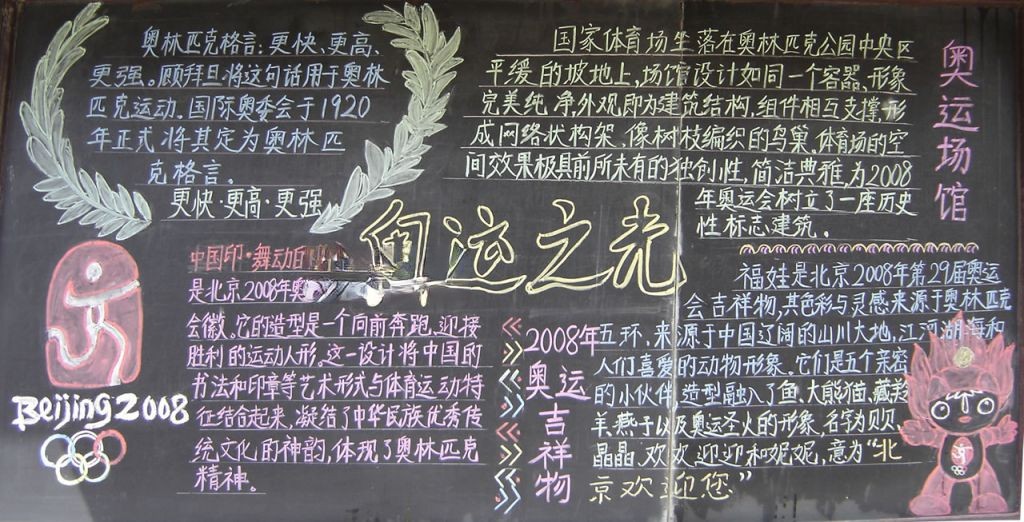 奥林匹克格言:更快、更高、
更强。顾拜旦将这句话用于奥林
匹克运动。国际奥委会于1920
年正式将其定为奥林匹
克格言。
更快·更高·更强
国家体育场坐落在奥林匹克公园中央区
平缓的坡地上,场馆设计如同一个容器,形象
完美纯净,外观即为建筑结构,组件相互支撑,形
成网络状构架,像树枝编织的鸟巢,体育场的空
间效果极具前所未有的独创性,简洁典雅,为2008
年奥运会树立了一座历史
性标志建筑。
奥运场馆
奥运之光
中国印·舞动
是北京2008年奥
会徽。它的造型是一个向前奔跑,迎接
胜利的运动人形。这一设计将中国的
书法和印章等艺术形式与体育运动特
征结合起来,凝结了中华民族优秀传
统文化的神韵,体现了奥林匹克
精神。
Beijing2008
2008年
奥运吉祥物
福娃是北京2008年第29届奥运
会吉祥物,其色彩与灵感来源于奥林匹克
五环,来源于中国辽阔的山川大地,江河湖海和
人们喜爱的动物形象。它们是五个亲密
的小伙伴,造型融入了鱼、大熊猫、藏羚
羊、燕子以及奥运圣火的形象,名字为贝贝、
晶晶、欢欢、迎迎和妮妮,意为“北
京欢迎您”